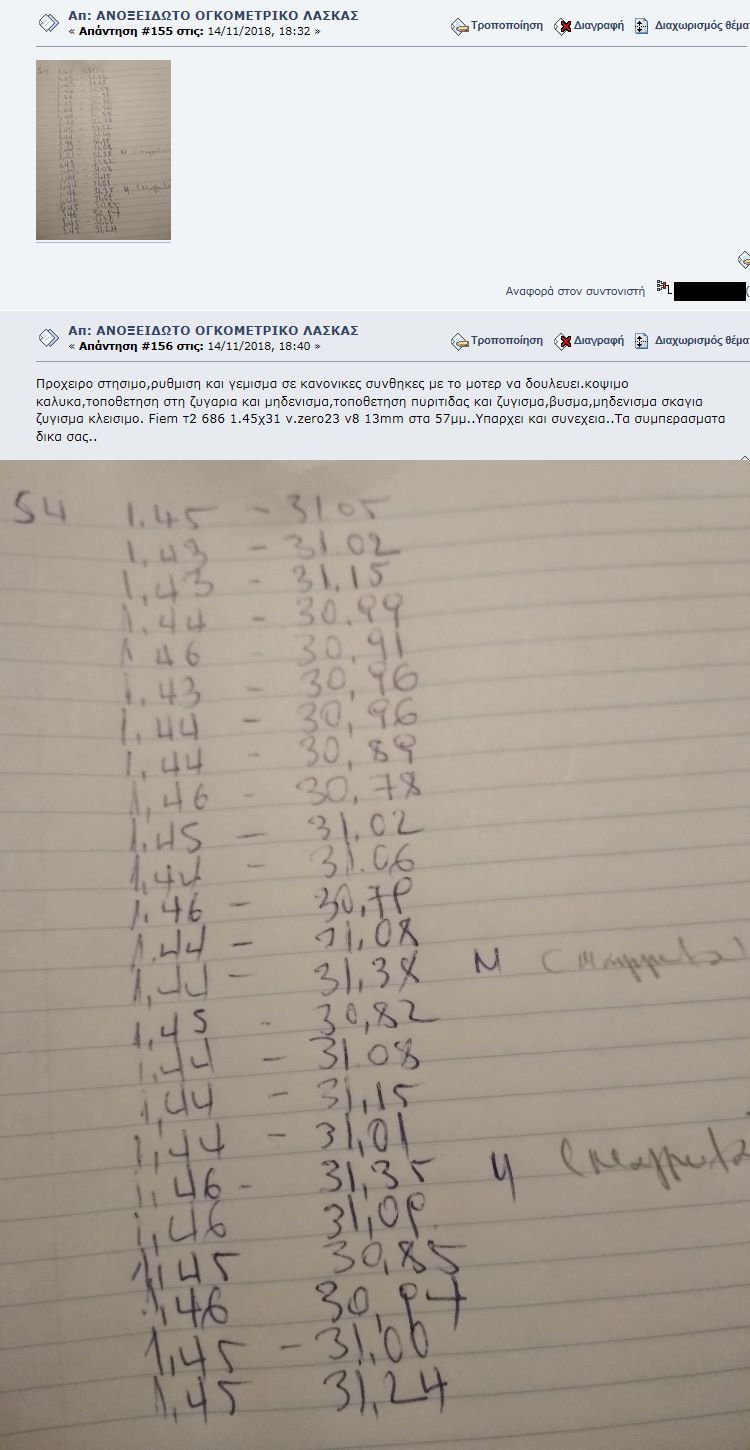 Απ: ΑΝΟΞΕΙΔΩΤΟ ΟΓΚΟΜΕΤΡΙΚΟ ΛΑΣΚΑΣ
« Απάντηση #155 στις: 14/11/2018, 18:32 »
Τροποποίηση Διαγραφή Διαχωρισμός θέμα
Αναφορά στον συντονιστή
Απ: ΑΝΟΞΕΙΔΩΤΟ ΟΓΚΟΜΕΤΡΙΚΟ ΛΑΣΚΑΣ
« Απάντηση #156 στις: 14/11/2018, 18:40 »
Τροποποίηση Διαγραφή Διαχωρισμός θέμα
Προχειρο στησιμο,ρυθμιση και γεμισμα σε κανονικες συνθηκες με το μοτερ να δουλευει.κοψιμο
καλυκα,τοποθετηση στη ζυγαρια και μηδενισμα,τοποθετηση πυριτιδας και ζυγισμα,βυσμα,μηδενισμα σκαγια
ζυγισμα κλεισιμο. Fiem τ2 686 1.45χ31 v.zero23 v8 13mm στα 57μμ..Υπαρχει και συνεχεια..Τα συμπερασματα
δικα σας..
S4 1.45 - 31.05
1.43 - 31.02
1,43 - 31.15
1.44 - 30.99
1.46 - 30,91
1.43 - 30,96
1.44 - 30,96
1,44 - 30,89
1,46 - 30,78
1,45 - 31.02
1,44 - 31.06
1.46 - 30,79
1.44 - 31,08
1,44 - 31,38 Μ
1,45 - 30,82
1,44 - 31.08
1,44 - 31,15
1,44 - 31,01
1,46 - 31,35 Μ
1,46 31,09
1,45 30,85
1,46 30,97
1,45 - 31,00
1,45 31,24